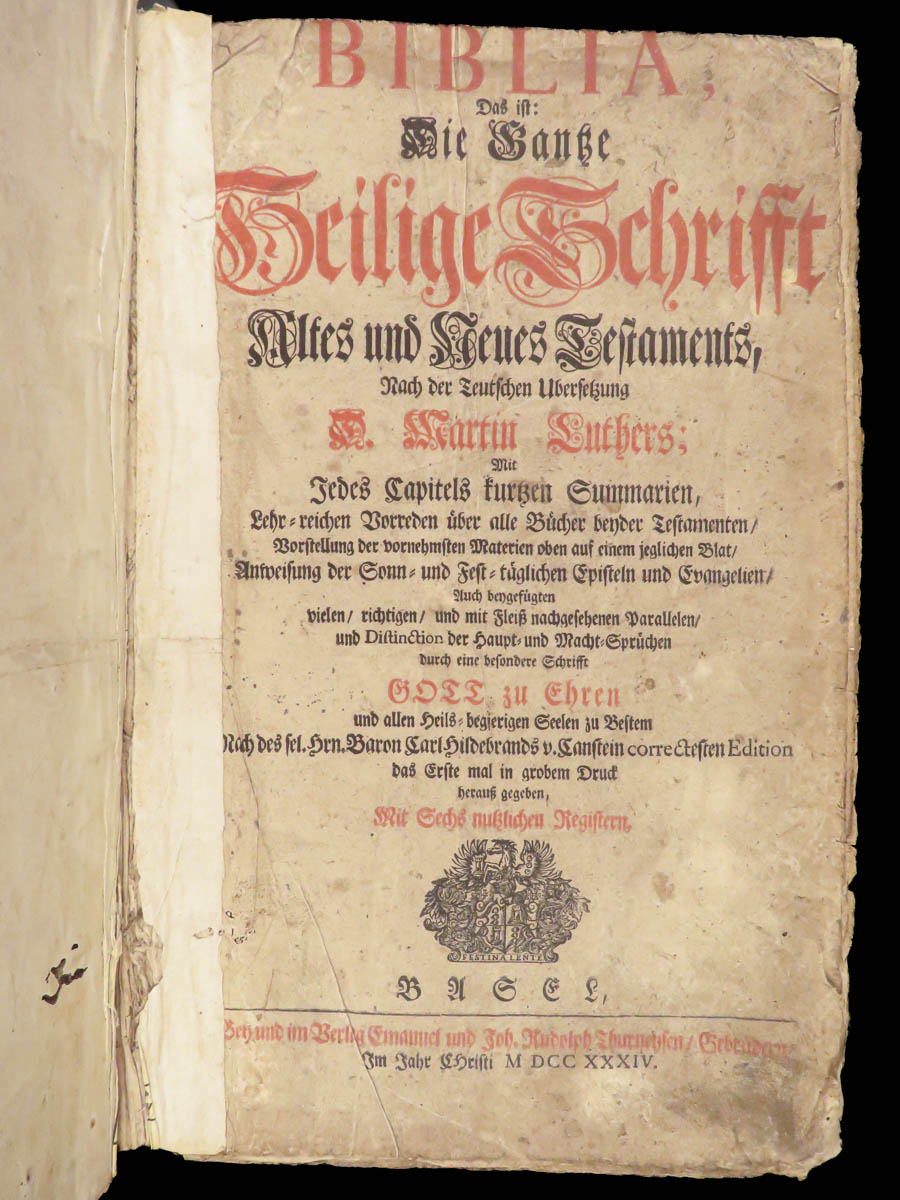 BIBLIA,
Das ist:
Die Gantze
Heilige Schrifft
Altes und Neues Testaments,
Nach der Teutschen Ubersetzung
D. Martin Luthers;
Mit
Jedes Capitels kurtzen Summarien,
Lehr-reichen Vorreden über alle Bücher beyder Testamenten/
Vorstellung der vornehmsten Materien oben auf einem jeglichen Blat/
Anweisung der Sonn- und Fest-täglichen Episteln und Evangelien/
Auch beygefügten
vielen/ richtigen/ und mit Fleiß nachgesehenen Parallelen/
und Distinction der Haupt- und Macht-Sprüchen
durch eine besondere Schrifft
GOTT zu Ehren
und allen Heils-begierigen Seelen zu Bestem
Nach des sel. Hrn. Baron Carl Hildebrands v. Canstein correctesten Edition
das Erste mal in grobem Druck
herauß gegeben,
Mit Sechs nutzlichen Registern.
FESTINA LENTE
BASEL,
Bey und im Verlag Emanuel und Joh. Rudolph Thurneysen/ Gebrüdern
Im Jahr CHristi M DCC XXXIV.